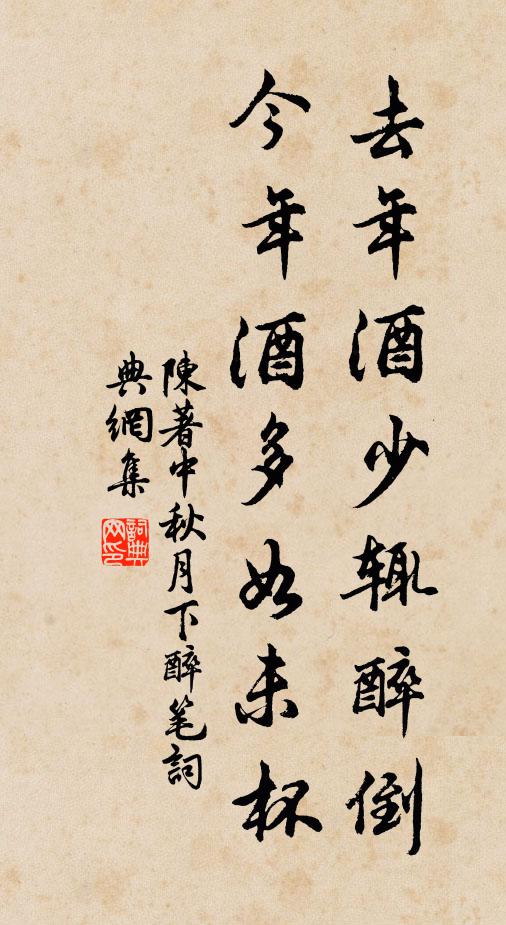 去年酒少辄醉倒
今年酒多如未杯
陳著中秋月下醉笔詞
典網集
詞典网印